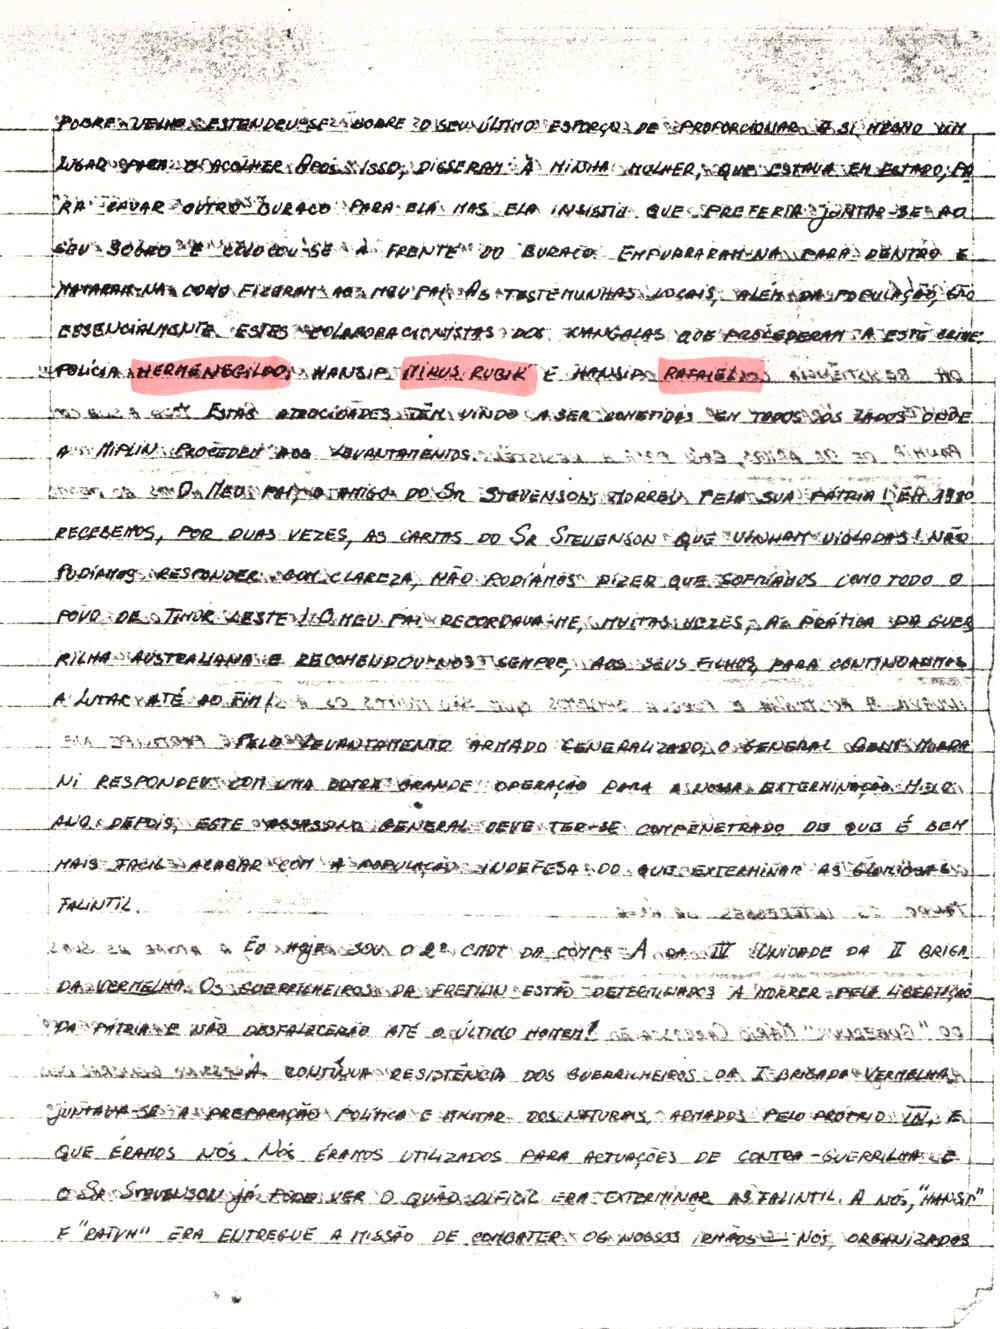 POBRE VELHO ESTENDEU-SE SOBRE O SEU ÚLTIMO ESFORÇO DE PROPORCIONAR A SI MESMO UM
LUGAR PARA O ACOLHER. APÓS ISSO, DISSERAM À MINHA MULHER, QUE ESTAVA EM ESTADO, PA
RA CAVAR OUTRO BURACO PARA ELA MAS ELA INSISTIU QUE PREFERIA JUNTAR-SE AO
SEU SOGRO E COLOCOU-SE À FRENTE DO BURACO. EMPURRARAM-NA PARA DENTRO E
MATARAM-NA COMO FIZERAM AO MEU PAI. AS TESTEMUNHAS LOCAIS, ALÉM DA POPULAÇÃO, SÃO
ESSENCIALMENTE ESTES COLABORACIONISTAS DOS XANGALAS QUE PROCEDERAM A ESTE CRIME:
POLÍCIA HERMENEGILDO, HANSIP MINUS RUBIK E HANSIP RAFAIEL.
ESTAS ATROCIDADES TÊM VINDO A SER COMETIDAS EM TODOS OS LADOS ONDE
A MIPLIN PROCEDEU AOS LEVANTAMENTOS.
O MEU PAI, O AMIGO DO SR STEVENSON, MORREU PELA SUA PÁTRIA! EM 1980
RECEBEMOS, POR DUAS VEZES, AS CARTAS DO SR STEVENSON QUE VINHAM VIOLADAS! NÃO
PODÍAMOS RESPONDER COM CLAREZA, NÃO PODÍAMOS DIZER QUE SOFRÍAMOS COMO TODO O
POVO DE TIMOR LESTE! O MEU PAI RECORDAVA-ME, MUITAS VEZES, A PRÁTICA DA GUER
RILHA AUSTRALIANA E RECOMENDOU-NOS SEMPRE, AOS SEUS FILHOS, PARA CONTINUARMOS
A LUTAR ATÉ AO FIM!
PELO LEVANTAMENTO ARMADO GENERALIZADO, O GENERAL BENY MURDA
NI RESPONDEU COM UMA OUTRA GRANDE OPERAÇÃO PARA A NOSSA EXTERMINAÇÃO. MEIO
ANO DEPOIS, ESTE ASSASSINO GENERAL DEVE TER-SE COMPENETRADO DE QUE É BEM
MAIS FÁCIL ACABAR COM A POPULAÇÃO INDEFESA DO QUE EXTERMINAR AS GLORIOSAS
FALINTIL.
EU HOJE SOU O 2º CMDT DA COMPª A DA IV UNIDADE DA II BRIGA
DA VERMELHA. OS GUERRILHEIROS DA FRETILIN ESTÃO DETERMINADOS A MORRER PELA LIBERTAÇÃO
DA PÁTRIA E NÃO DESFALECERÃO ATÉ O ÚLTIMO HOMEM!
À CONTÍNUA RESISTÊNCIA DOS GUERRILHEIROS DA I BRIGADA VERMELHA,
JUNTAVA-SE A PREPARAÇÃO POLÍTICA E MILITAR DOS NATURAIS, ARMADOS PELO PRÓPRIO IN, E
QUE ÉRAMOS NÓS. NÓS ÉRAMOS UTILIZADOS PARA ACTUAÇÕES DE CONTRA-GUERRILHA E
O SR STEVENSON JÁ PODE VER O QUÃO DIFÍCIL ERA EXTERMINAR AS FALINTIL. A NÓS, "HANSIP"
E "RATIH" ERA ENTREGUE A MISSÃO DE COMBATER OS NOSSOS IRMÃOS — NÓS, ORGANIZADOS